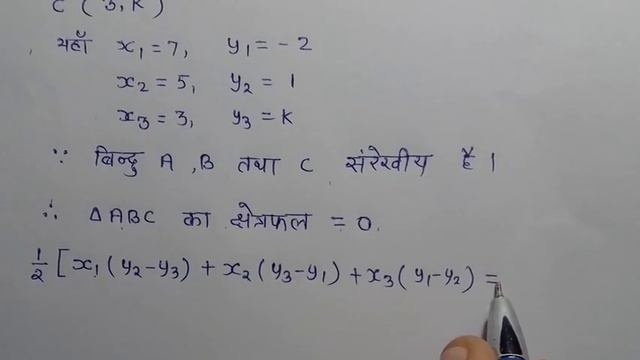 C ( 3, K )
यहाँ x₁ = 7, y₁ = - 2
x₂ = 5, y₂ = 1
x₃ = 3, y₃ = K
∵ बिन्दु A , B तथा C संरेखीय है ।
∴ △ABC का क्षेत्रफल = 0.
½ [ x₁ ( y₂ - y₃ ) + x₂ ( y₃ - y₁ ) + x₃ ( y₁ - y₂ ) =